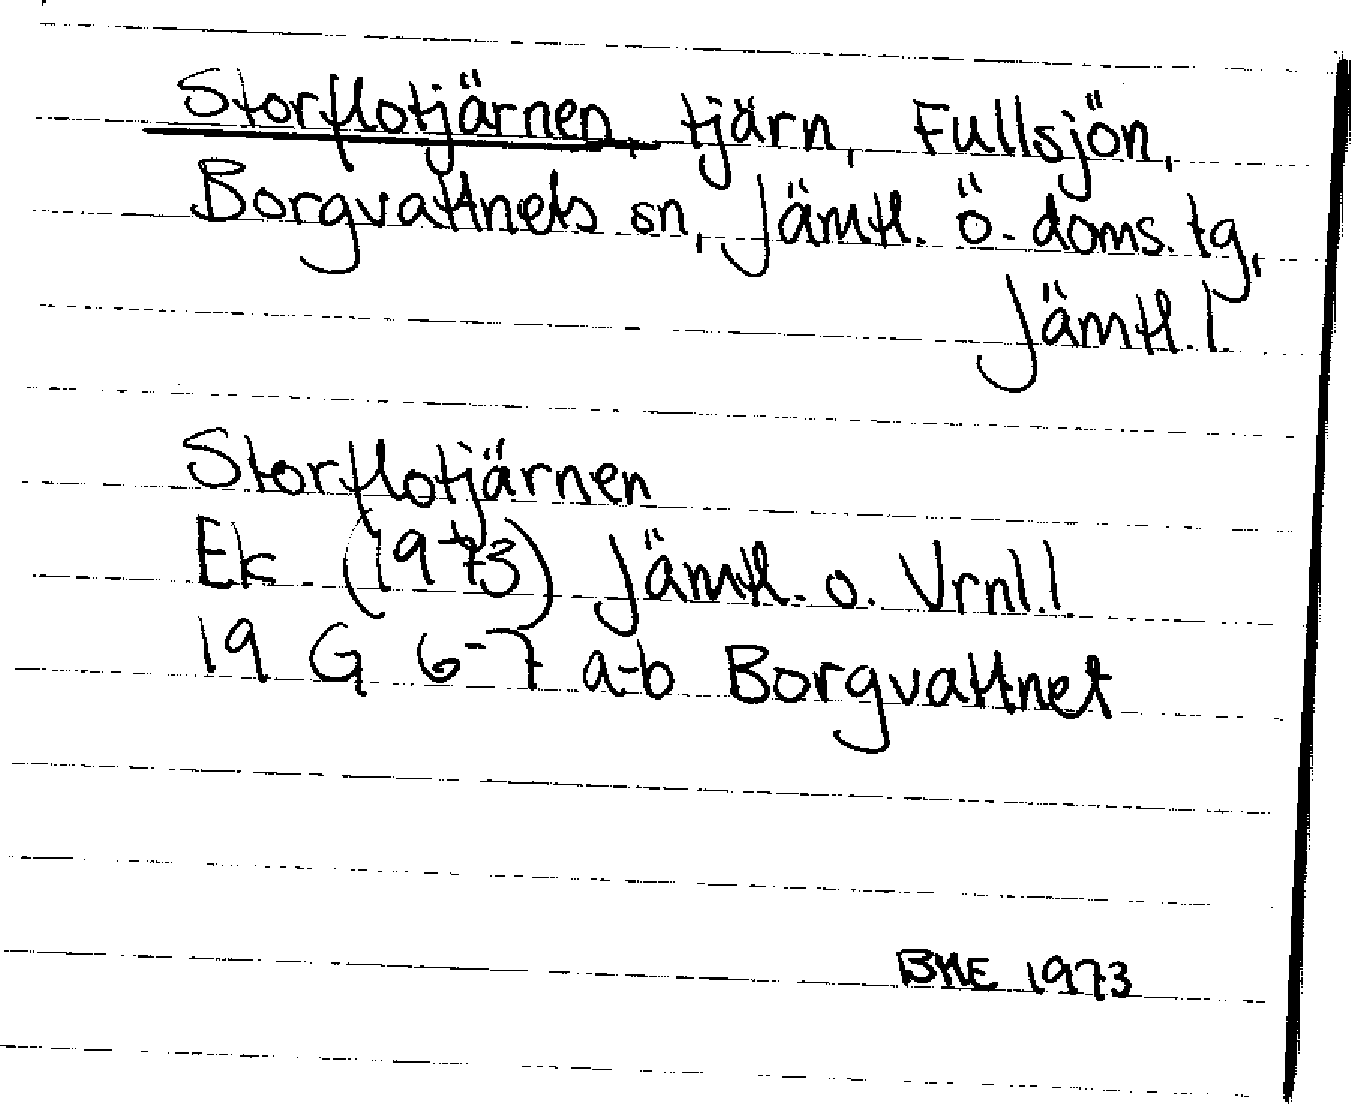 Storflotjärnen, tjärn, Fullsjön,
Borgvattnets sn, Jämtl. ö. doms. tg,
Jämtl. l
Storflotjärnen
Ek (1973) Jämtl. o. Vrnl. l
19 G 6-7 a-b Borgvattnet
BKE 1973